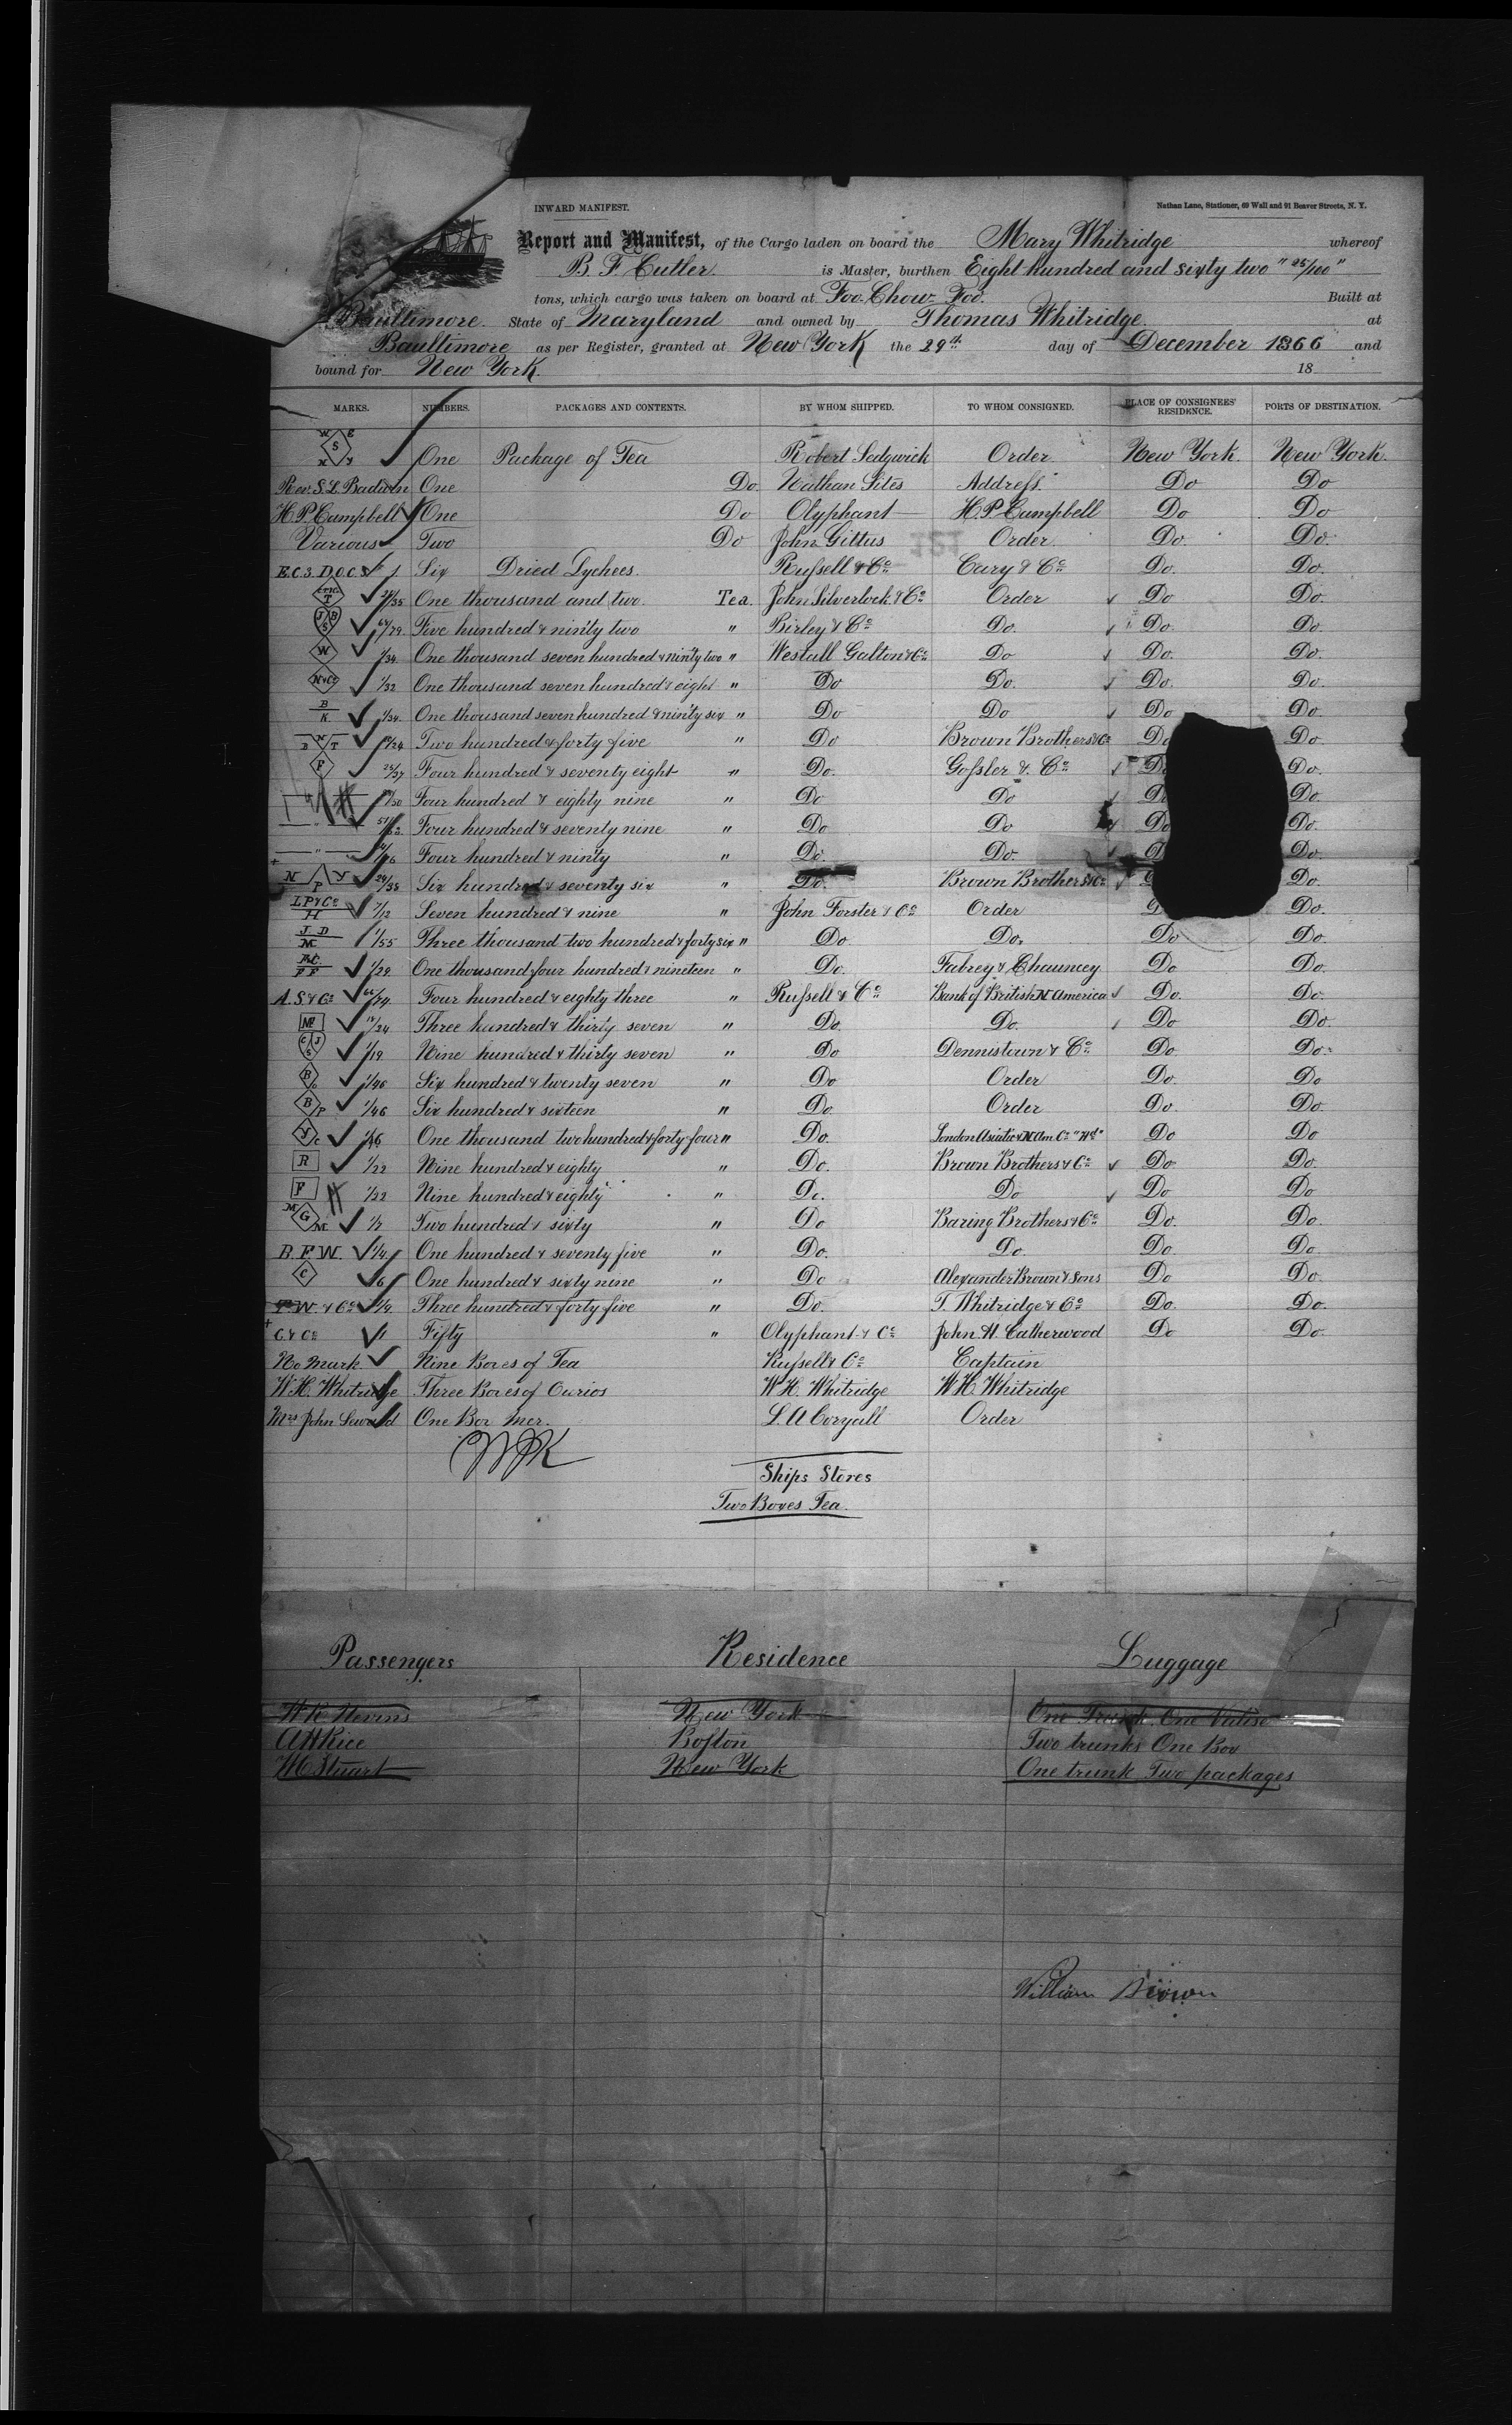 INWARD MANIFEST.
Nathan Lane, Stationer, 69 Wall and 91 Beaver Streets, N. Y.
Report and Manifest, of the Cargo laden on board the Mary Whitridge whereof
B. F. Cutler is Master, burthen Eight hundred and sixty two " 25/100 "
tons, which cargo was taken on board at Foo-Chow-Foo. Built at
Baultimore. State of Maryland and owned by Thomas Whitridge at
Baultimore as per Register, granted at New York the 29th day of December 1866 and
bound for New York. 18
MARKS. NUMBERS. PACKAGES AND CONTENTS. BY WHOM SHIPPED. TO WHOM CONSIGNED. PLACE OF CONSIGNEES' RESIDENCE. PORTS OF DESTINATION.
S One Package of Tea Robert Sedgwick Order New York. New York.
Rev. S. L. Badwin One Do. Nathan Sites Address. Do Do
H. P. Campbell One Do Olyphant H. P. Campbell Do Do
Various Two Do John Gittus Order. Do. Do.
E.C.3. D.O.C.S. 1 Six Dried Lychees. Russell & Co Cary & Co Do. Do.
T /35 One thousand and two. Tea. John Silverlock & Co Order Do Do.
J B S /79 Five hundred & ninty two " Birley & Co Do. Do. Do.
W 1/34 One thousand seven hundred & ninty two " Westall Galton & Co Do Do. Do.
1/32 One thousand seven hundred & eight " Do Do. Do. Do.
B K 1/34. One thousand seven hundred & ninty six " Do Do Do Do.
N B T /24 Two hundred & forty five " Do Brown Brothers & Co Do Do.
F 25/37 Four hundred & seventy eight " Do. Gossler & Co Do Do.
/50 Four hundred & eighty nine " Do Do Do.
" Four hundred & seventy nine " Do Do Do Do.
" Four hundred & ninty " Do. Do. Do.
N P Y 29/38 Six hundred & seventy six " Do. Brown Brothers & Co Do.
I.P & Co H 7/12 Seven hundred & nine " John Forster & Co Order Do.
J. D M. 1/55 Three thousand two hundred & forty six " Do. Do. Do Do.
F F 1/29. One thousand four hundred & nineteen " Do. Fabrey & Chauncey Do Do.
A. S. & Co /74 Four hundred & eighty three " Russell & Co Bank of British N America Do. Do.
/24 Three hundred & thirty seven " Do. Do. Do Do.
C J S 1/19 Nine hundred & thirty seven " Do Dennistown & Co Do. Do.
R 1/46 Six hundred & twenty seven " Do Order Do. Do
B P 1/46 Six hundred & sixteen " Do. Order Do. Do.
Y C One thousand two hundred & forty four " Do. London Asiatic & N Am. Co Do Do
R 1/22 Nine hundred & eighty " Do. Brown Brothers & Co Do Do.
F 1/22 Nine hundred & eighty " Do. Do Do Do
M G M 1/7 Two hundred & sixty " Do Baring Brothers & Co Do. Do.
B. F. W. 1/4. One hundred & seventy five " Do. Do. Do Do
C 6 One hundred & sixty nine " Do Alexander Brown & Sons Do Do.
T. W. & Co 1/9. Three hundred & forty five " Do. T. Whitridge & Co Do. Do.
C. & Co 1 Fifty " Olyphant & Co John H. Catherwood Do Do.
No Mark. Nine Boxes of Tea Russell & Co Captain
W. H. Whitridge Three Boxes of Curios W. H. Whitridge W H. Whitridge
Mrs John Seward One Box Mer. L. A Coryall Order
Ships Stores
Two Boxes Tea.
Passengers Residence Luggage
W R Nevins New York One Trunk One Valise
A H Rice Boston Two trunks One Box
W C Stuart New York One trunk Two packages
William Brown